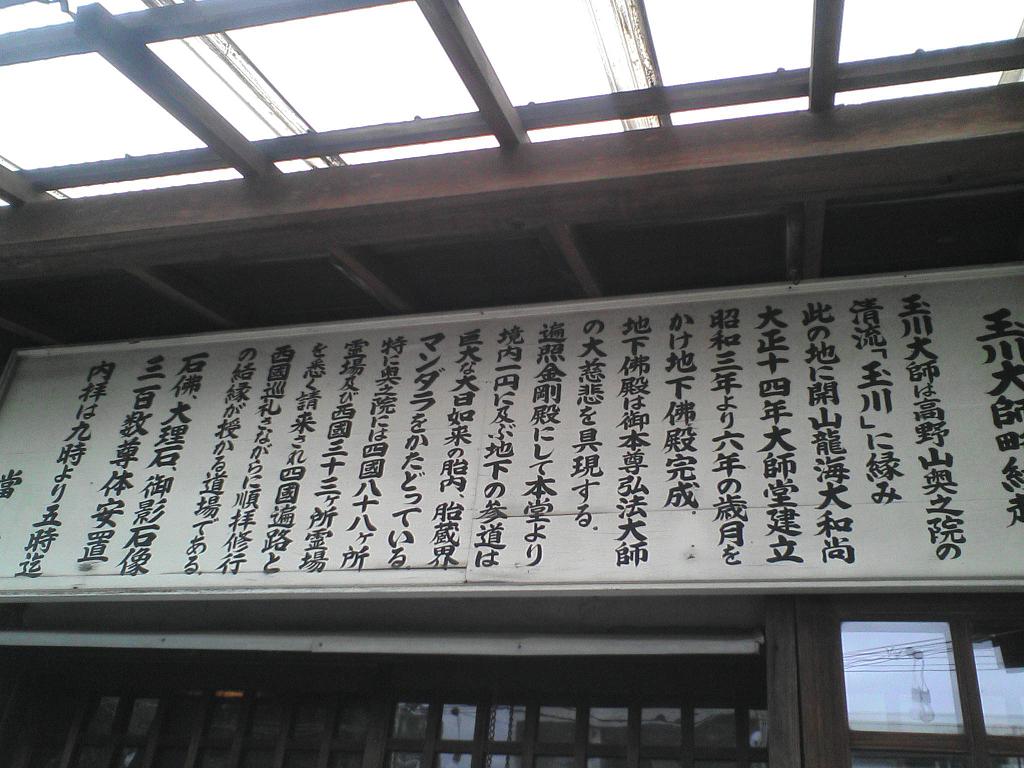 玉川大師略縁起
玉川大師は高野山奥之院の
清流「玉川」に縁み
此の地に開山龍海大和尚
大正十四年大師堂建立
昭和三年より六年の歳月を
かけ地下佛殿完成。
地下佛殿は御本尊弘法大師
の大慈悲を具現する。
遍照金剛殿にして本堂より
境内一円に及ぶ地下の参道は
巨大な大日如来の胎内、胎蔵界
マンダラをかたどっている
特に奥之院には四國八十八ヶ所
霊場及び西國三十三ヶ所霊場
を悉く請来され四國遍路と
西國巡礼さながらに順拝修行
の結縁が授かる道場である
石佛、大理石、御影石像
三百数尊体安置
内拝は九時より五時迄
當